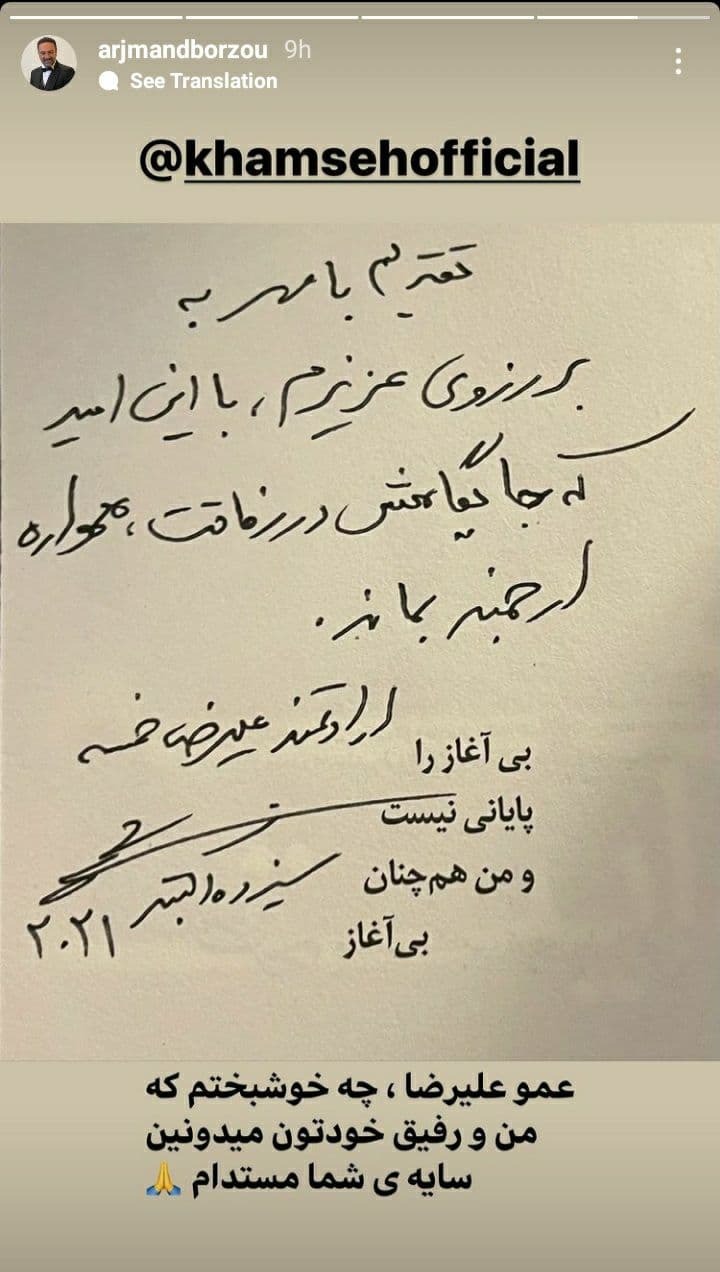 arjmandborzou 9h
See Translation
@khamsehofficial
تقدیم با مهر به
برزوی عزیزم، با این امید
که جایگاهش در رفاقت، همواره
ارجمند بماند.
ارادتمند علیرضا خمسه
بی آغاز را
پایانی نیست
و من هم‌چنان
بی‌آغاز
سیزده
۲۰۲۱
عمو علیرضا ، چه خوشبختم که
من و رفیق خودتون میدونین
سایه ی شما مستدام 🙏